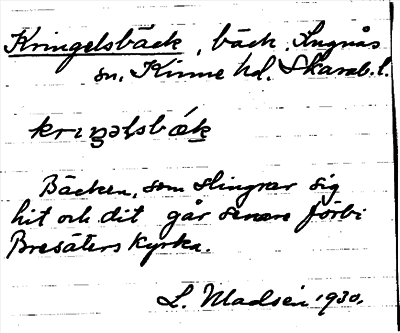 Kringelsbäck, bäck, Lugnås
sn. Kinne hd. Skarab. l.
Bäcken, som slingrar sig
hit och dit går senare förbi
Bresäters Kyrka.
L. Madsén 1930.